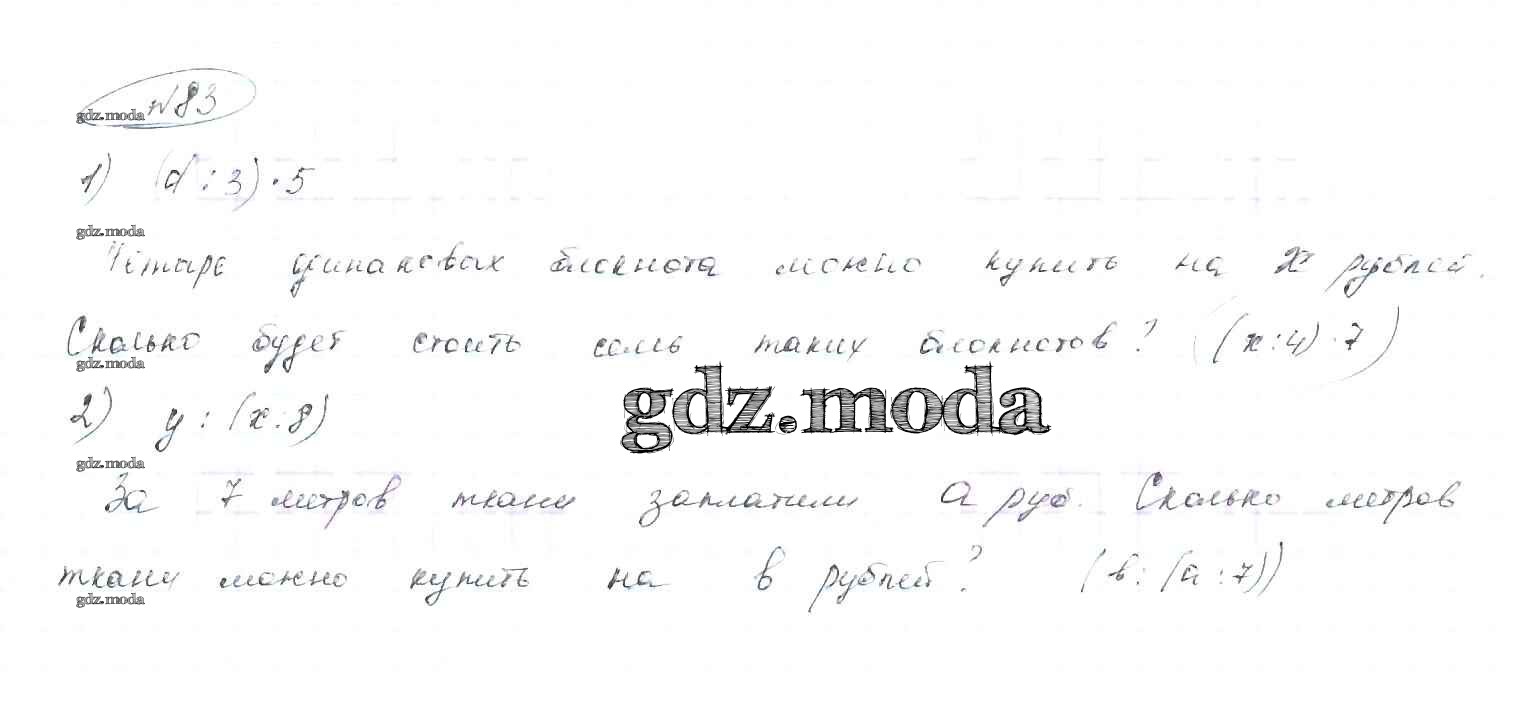 №83
gdz.moda
1) (d : 3) · 5
gdz.moda
Четыре одинаковых блокнота можно купить на x рублей.
Сколько будет стоить семь таких блокнотов? (x : 4) · 7)
gdz.moda
gdz.moda
2) y : (x : 8)
gdz.moda
За 7 метров ткани заплатили a руб. Сколько метров
ткани можно купить на в рублей? (в : (a : 7))
gdz.moda